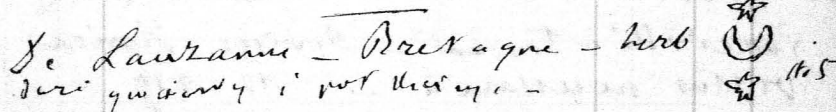 De Lauzanne – Bretagne – herb
dwie gwiazdy i pół księżyc – No 5